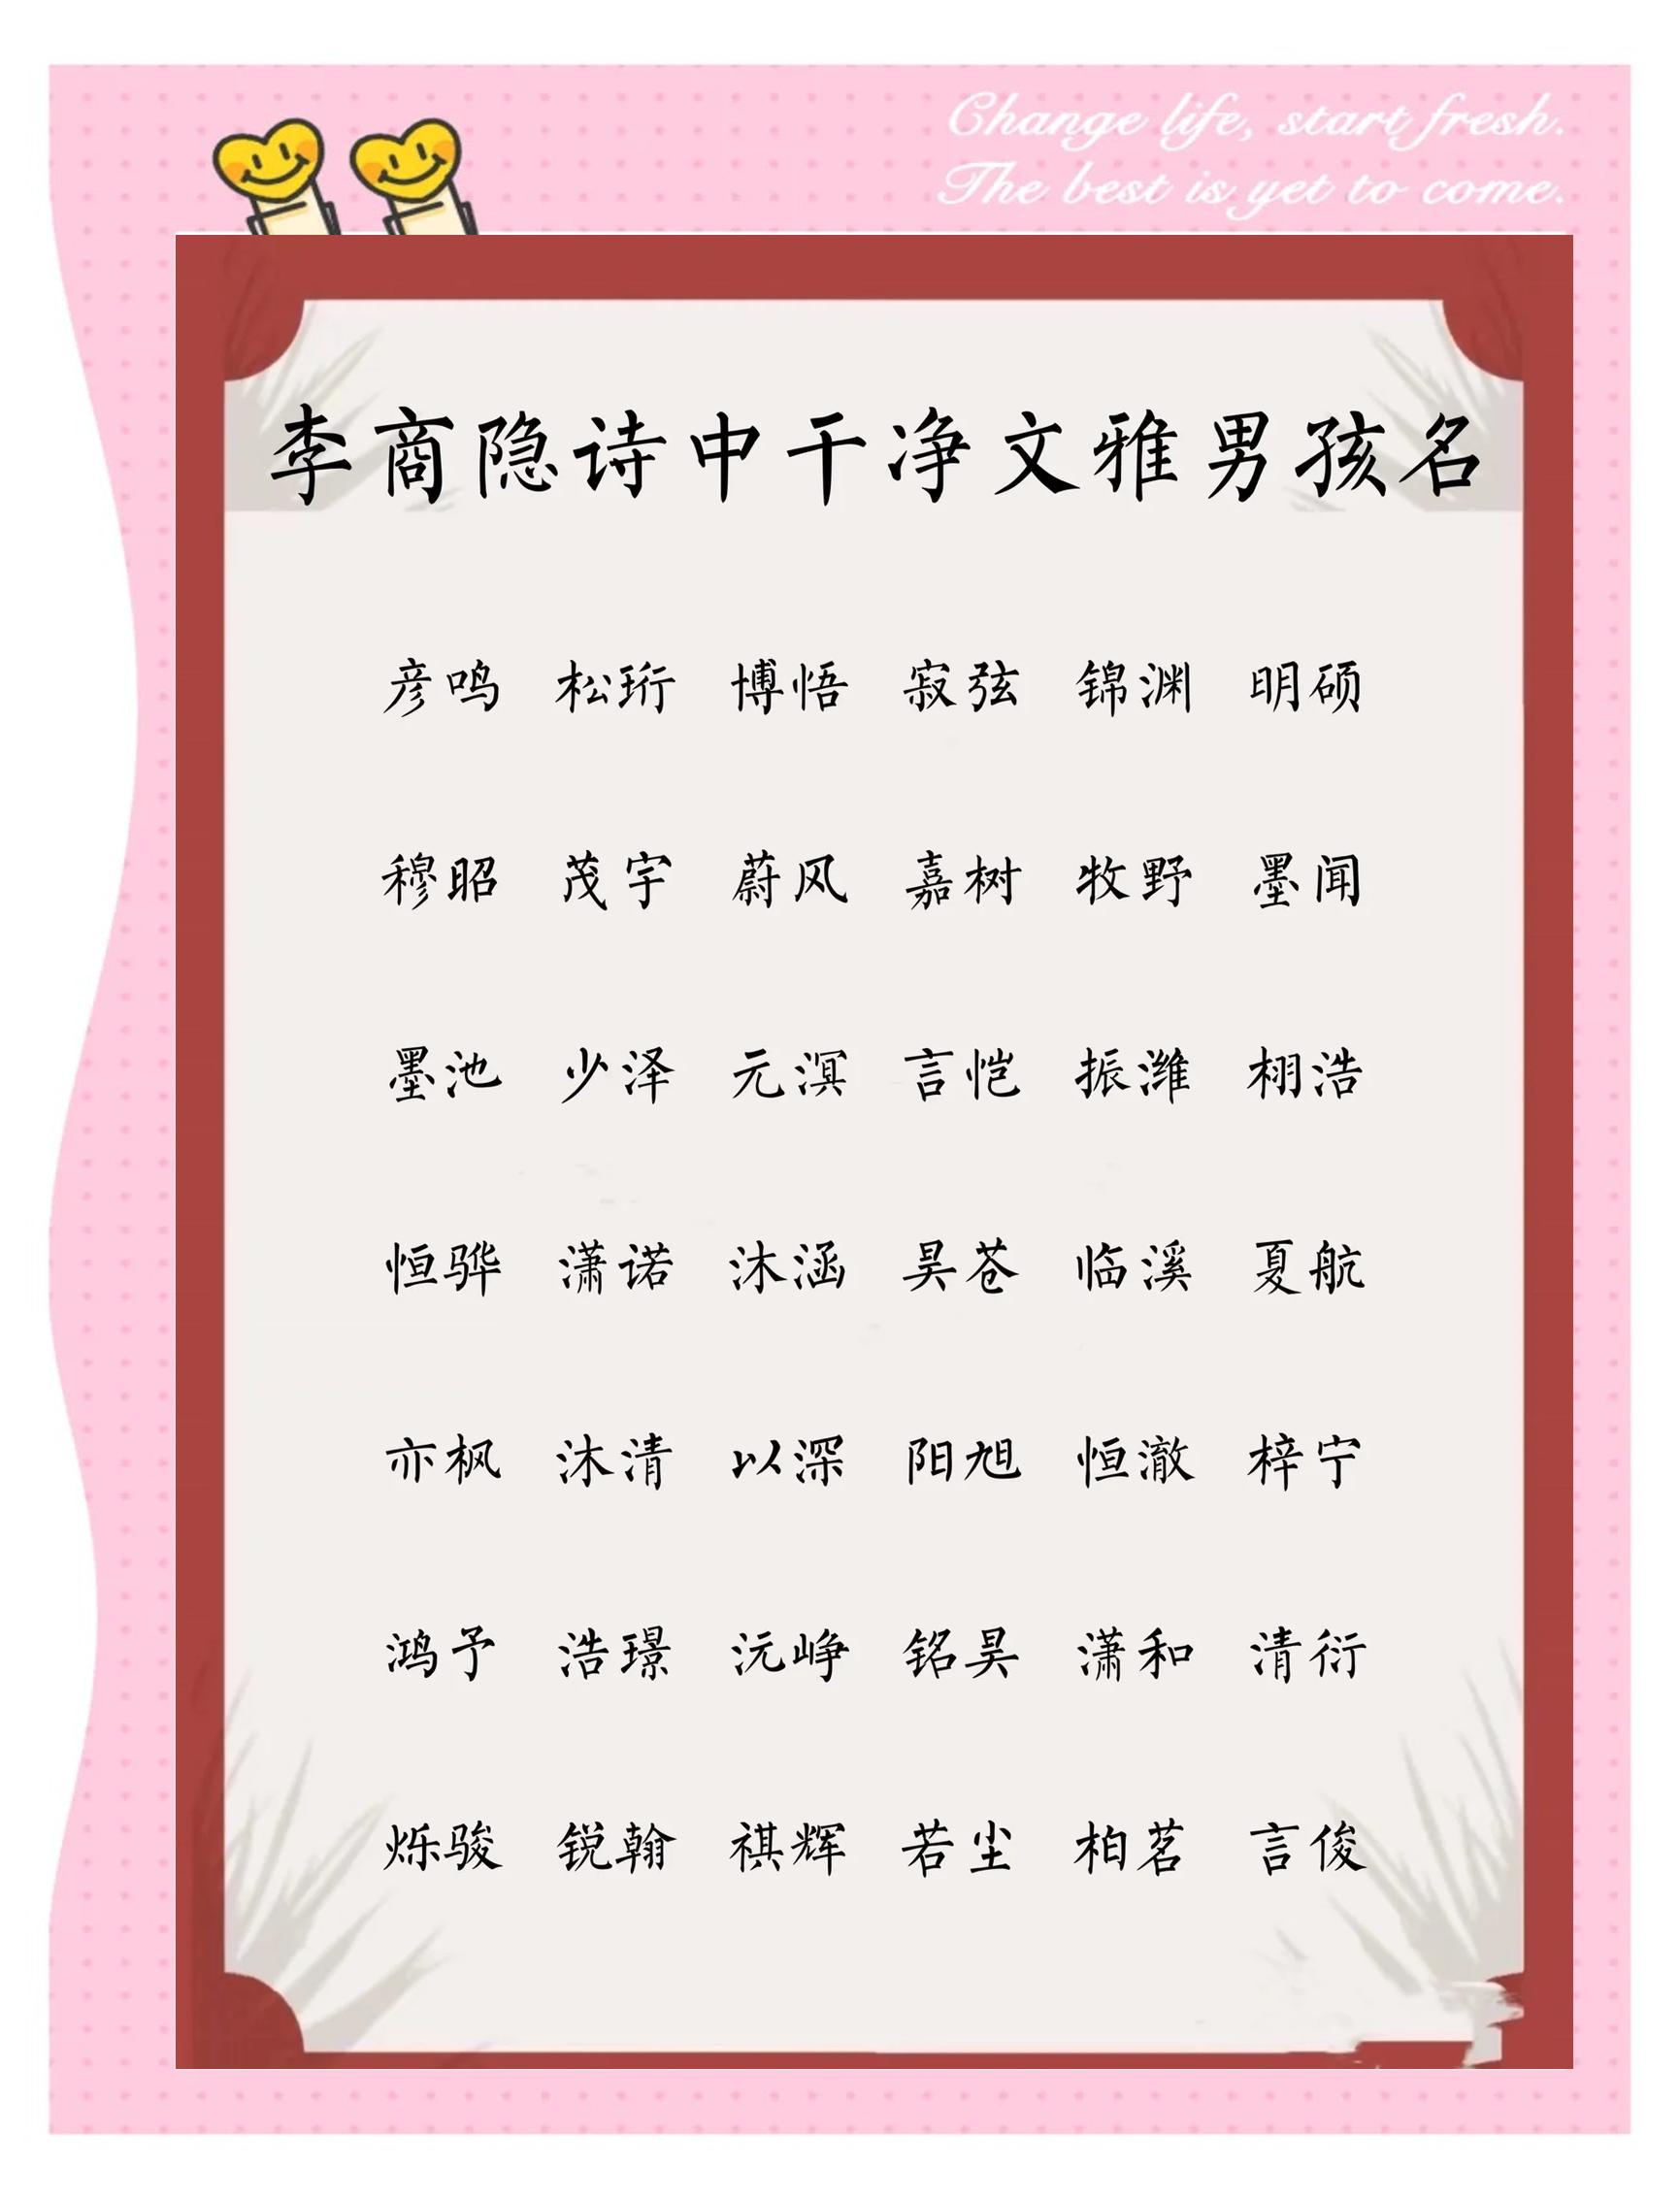 Change life, start fresh.
The best is yet to come.
李商隐诗中干净文雅男孩名
彦鸣 松珩 博悟 寂弦 锦渊 明硕
穆昭 茂宇 蔚风 嘉树 牧野 墨闻
墨池 少泽 元溟 言恺 振潍 栩浩
恒骅 潇诺 沐涵 昊苍 临溪 夏航
亦枫 沐清 以深 阳旭 恒澈 梓宁
鸿予 浩璟 沅峥 铭昊 潇和 清衍
烁骏 锐翰 祺辉 若尘 柏茗 言俊